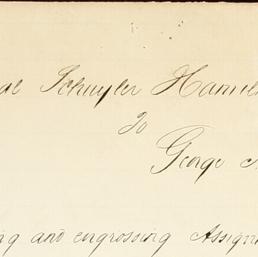 Schuyler Hamil
To
George
and engrossing Assign